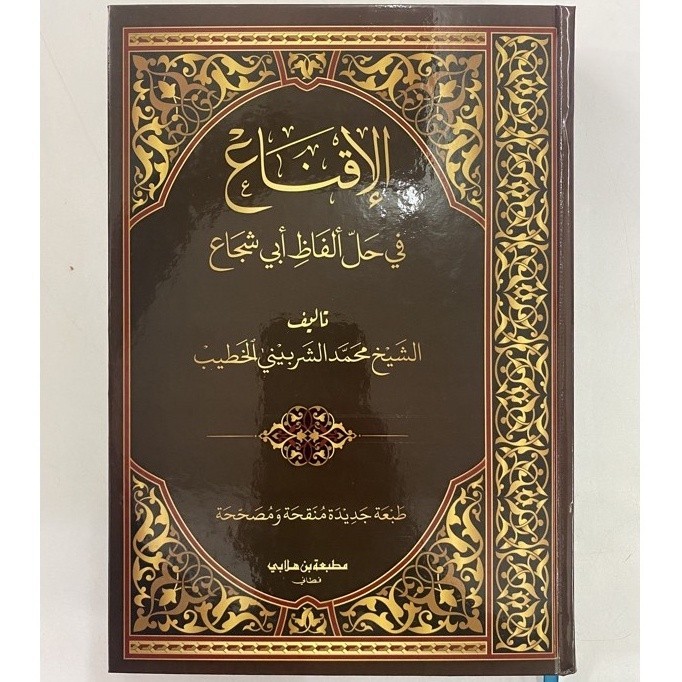 الإقناع
في حل ألفاظ أبي شجاع
تأليف
الشيخ محمد الشربيني الخطيب
طبعة جديدة منقحة ومصححة
مطبعة بن هلابي
فطاني